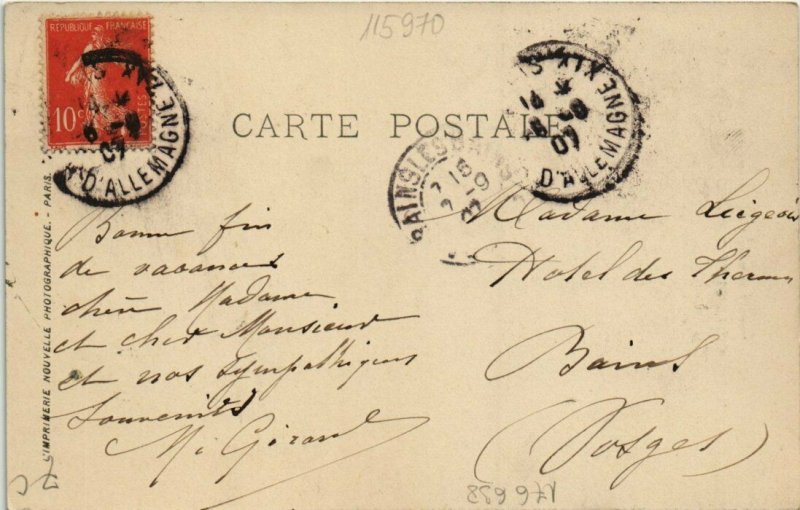 115970
RÉPUBLIQUE FRANÇAISE
10c
POSTES
D'ALLEMAGNE
CARTE POSTALE
D'ALLEMAGNE
BAINS LES BAINS
Bonne fin
de vacances
chère Madame
et cher Monsieur
et nos sympathiques
souvenirs
M. Girard
Madame Liégeois
Hotel des Thermes
Bains
(Vosges)
L'IMPRIMERIE NOUVELLE PHOTOGRAPHIQUE. - PARIS.
176698